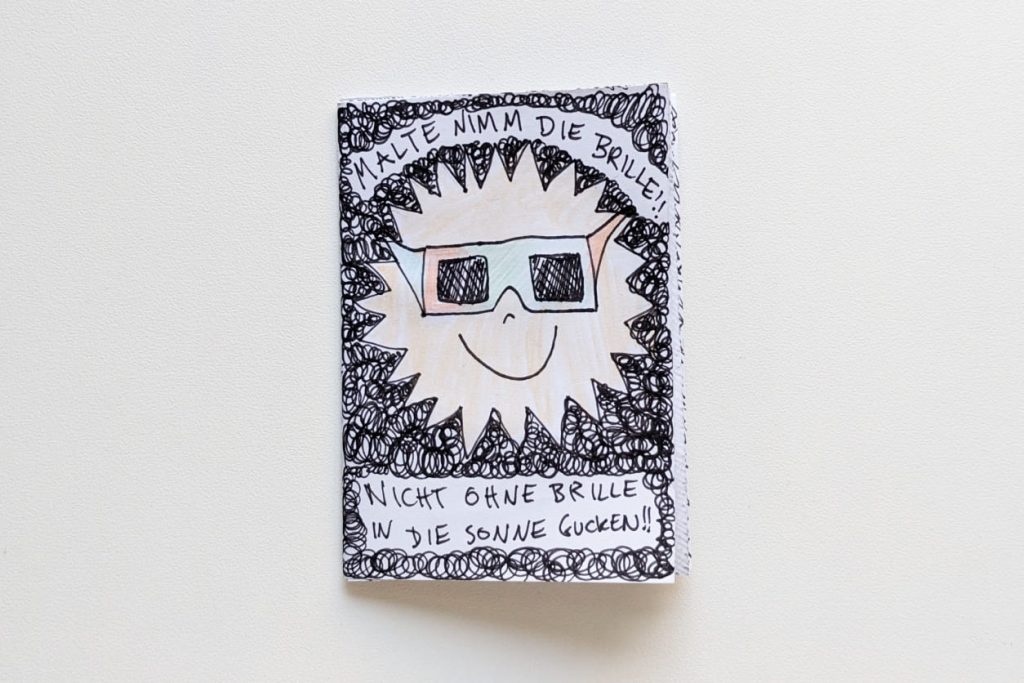 MALTE NIMM DIE BRILLE!!
NICHT OHNE BRILLE
IN DIE SONNE GUCKEN!!